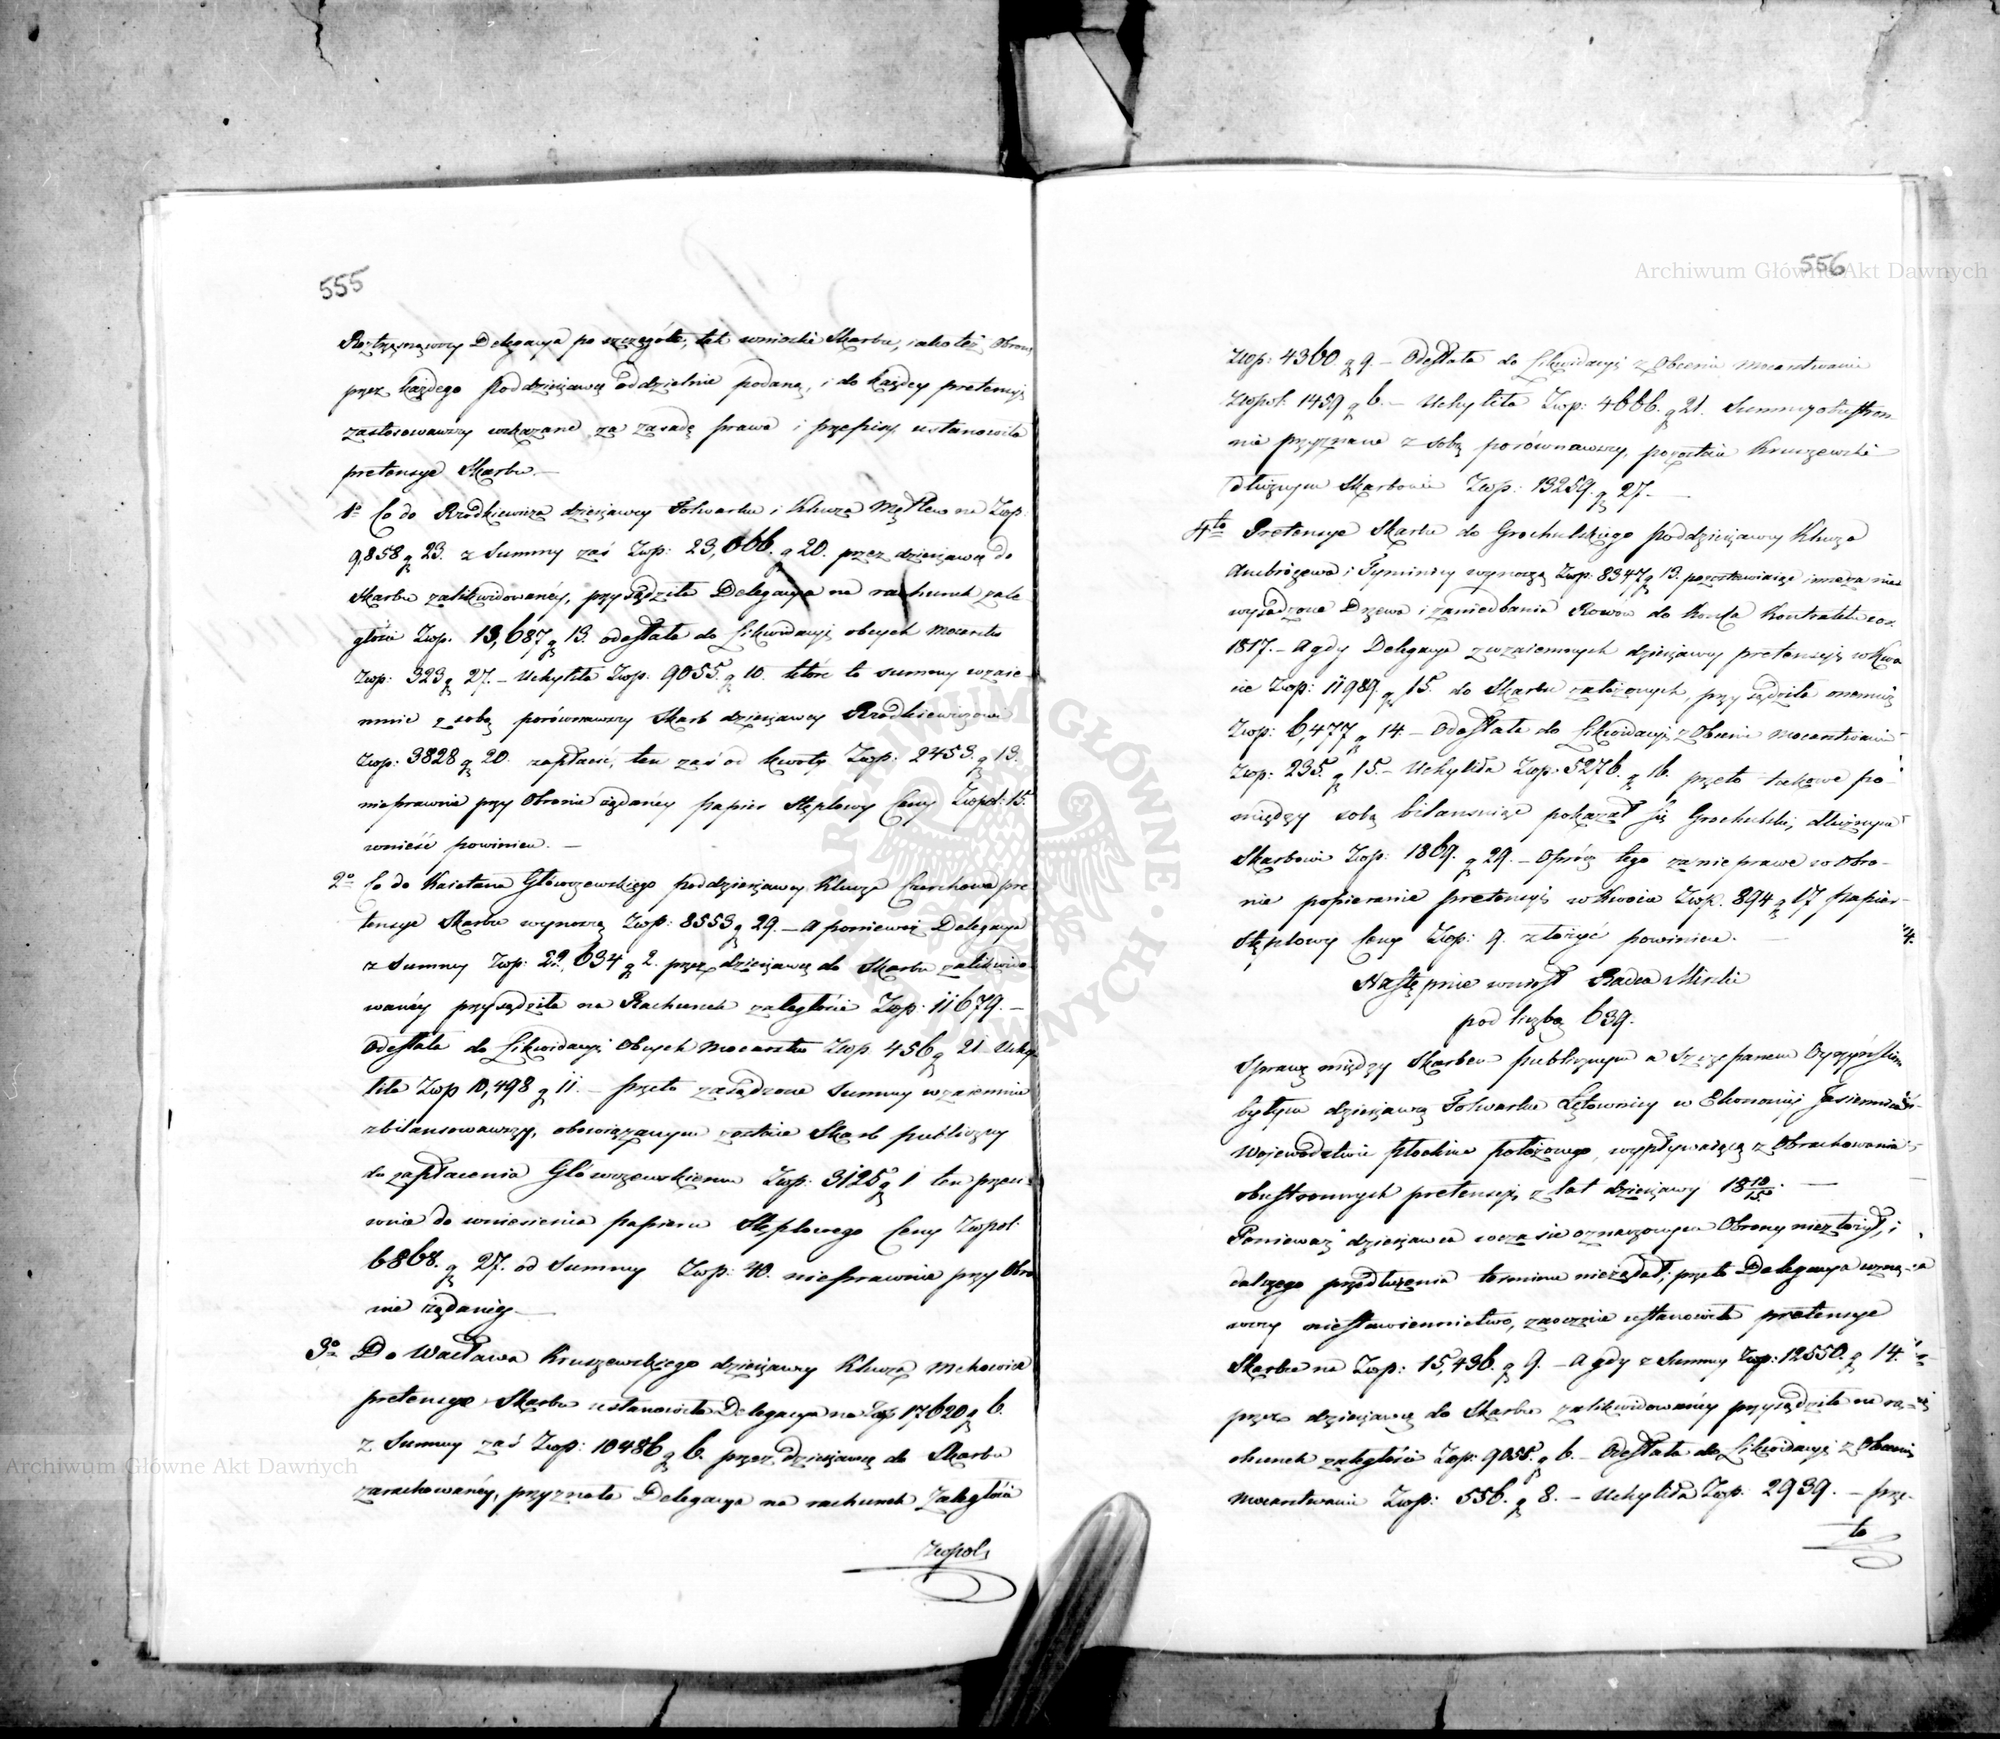 555
Roztrząsnąwszy Delegacya po szczególe, tak wnioski Skarbu, iako też Obronę
przez każdego Poddzierżawcę oddzielnie podaną, i do każdey pretensyi
zastosowawszy wskazane za zasadę prawa i przepisy ustanowiła
pretensye Skarbu. —
1o Co do Rzodkiewicza dzierżawcy Folwarku i Klucza Mątlew na Zwp:
9,858 g 23. z Summy zaś Zwp: 23,066. g 20. przez dzierżawcę do
Skarbu zalikwidowanéy, przysądziła Delegacya na rachunek zale
głości Zwp. 13,687 g 13. odesłała do Likwidacyi obcych Mocarstw
Zwp: 323 g 27. — Uchyliła Zwp. 9055. g 10. które to summy wzaie-
mnie z sobą porównawszy Skarb dzierżawcy Rzodkiewiczowi
Zwp: 3828 g 20. zapłacić, ten zaś od kwoty Zwp: 2453. g 13.
nieprawnie przy Obronie żądanéy papier Stęplowy Ceny Zwpol: 15.
wnieść powinien. —
2o Co do Kaietana Główczewskiego poddzierżawcy Klucza Czerchowa pre
tensye Skarbu wynoszą Zwp: 8553 g 29. — A ponieważ Delegacya
z Summy Zwp: 22,634 g 2. przez dzierżawcę do Skarbu zalikwido-
wanéy przysądziła na Rachunek zaległości Zwp. 11679. —
Odesłała do Likwidacyi Obcych Mocarstw Zwp. 456 g 21 Uchy
liła Zwp 10,498 g 11. — przeto zasądzone Summy wzaiemnie
zbilansowawszy, obowiązanym zostaie Skarb publiczny
do zapłacenia Główczewskiemu Zwp: 3125 g 1 ten przeci
wnie do wniesienia papieru Stęplowego Ceny Zwpol:
6868. g 27. od Summy Zwp: 40. nieprawnie przy Obro
nie żądanéy. —
3o Do Wacława Kruszewskiego dzierżawcy Klucza Mchowia
pretensye Skarbu ustanowiła Delegacya na Zwp 17620 g 6.
z Summy zaś Zwp: 10486 g 6. przez dzierżawcę do Skarbu
zarachowanéy, przyznała Delegacya na rachunek Zaległości
Zwpol:
556
Zwp: 4360 g 9. — Odesłała do Likwidacyi z Obcemi Mocarstwami
Zwpol: 1459 g 6. — Uchyliła Zwp: 4666. g 21. Summy obustron-
nie przyznane z sobą porównawszy, pozostaie Kruszewski
dłużnym Skarbowi Zwp: 13259. g 27. —
4to Pretensye Skarbu do Grochulskiego poddzierżawcy Klucza
Ambrożewa i Tyminicy wynoszą Zwp: 8347 g 13. pozostawiaiąc inne za nie
wysadzone Drzewa i zaniedbania Rowów do Końca Kontraktu
1817. — A gdy Delegacya z wzaiemnych dzierżawcy pretensyi w Kwo
cie Zwp: 11989. g 15. do Skarbu założonych, przysądziła onemuż
Zwp: 6,477 g 14 — Odesłała do Likwidacyi z Obcemi Mocarstwami
Zwp: 235. g 15. — Uchyliła Zwp. 5276. g 16. przeto takowe po-
między sobą bilansuiąc pokazał się Grochulski, dłużnym
Skarbowi Zwp: 1869. g 29. — Oprócz tego za nieprawe w Obro-
nie popieranie pretensyi w Kwocie Zwp. 894 g 17 papier
Stęplowy Ceny Zwp: 9. złożyć powinien. —
Następnie wniósł Radca Mirski
pod liczbą 639.
Sprawę między Skarbem publicznym a Szczepanem Ożyńskim
byłym dzierżawcą Folwarku Łętownicy w Ekonomii
Województwie Płockim położonego, wypływaiącą z Obrachowania
obustronnych pretensyi z lat dzierżawy 18 12/15. —
Ponieważ dzierżawca w czasie oznaczonym Obrony niezłożył, i
dalszego przedłużenia terminu nieżądał; przeto Delegacya uzna-
wszy niestawiennictwo, zaocznie ustanowiła pretensye
Skarbu na Zwp: 15,436. g 9. — A gdy z Summy Zwp: 12550. g 14.
przez dzierżawcę do Skarbu zalikwidowanéy przysądziła na ra-
chunek zaległości Zwp: 9055. g 6. — Odesłała do Likwidacyi z Obcemi
Mocarstwami Zwp: 556. g 8. — Uchyliła Zwp: 2939. — prze-
to
Archiwum Główne Akt Dawnych
Archiwum Główne Akt Dawnych
ARCHIWUM GŁÓWNE AKT DAWNYCH